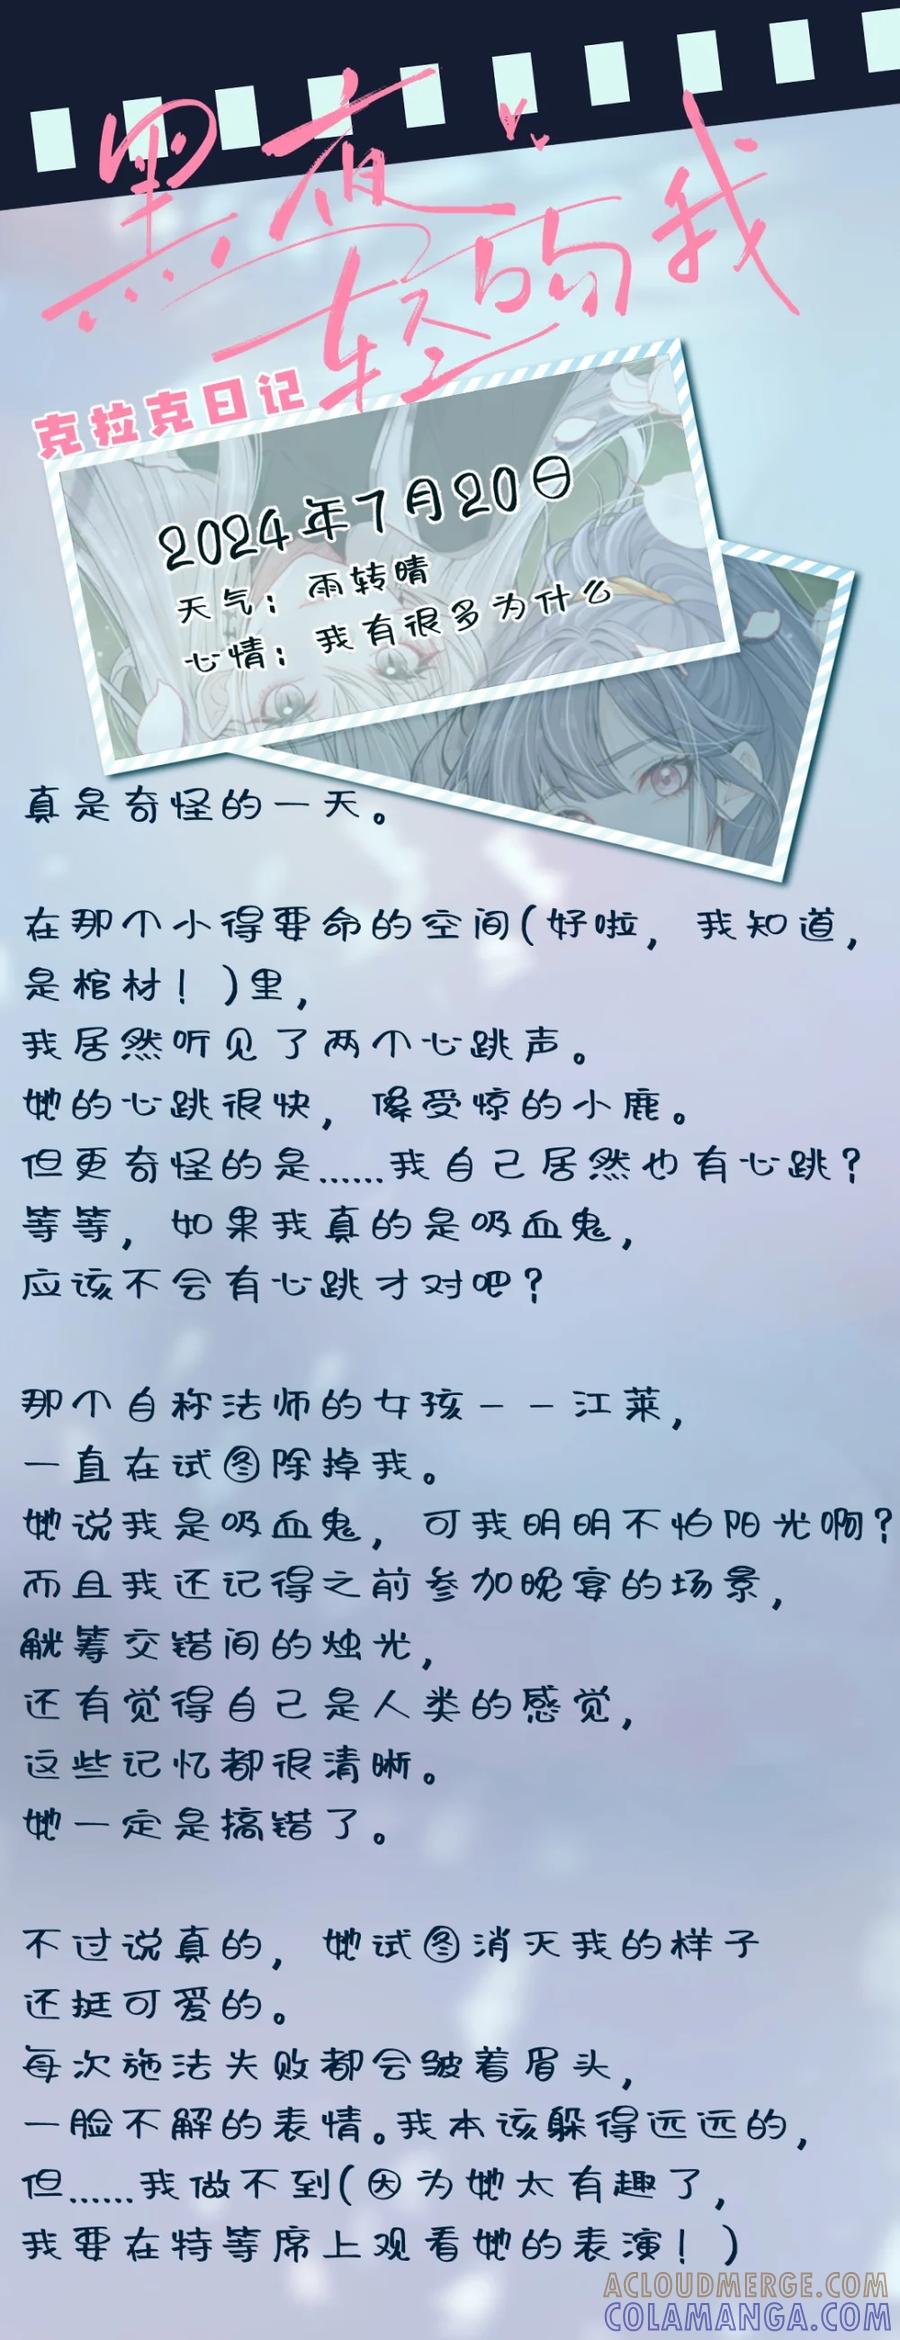 黑夜
轻吻我
克拉克日记
2024年7月20日
天气：雨转晴
心情：我有很多为什么
真是奇怪的一天。
在那个小得要命的空间(好啦，我知道，
是棺材！)里，
我居然听见了两个心跳声。
她的心跳很快，像受惊的小鹿。
但更奇怪的是……我自己居然也有心跳？
等等，如果我真的是吸血鬼，
应该不会有心跳才对吧？
那个自称法师的女孩——江莱，
一直在试图除掉我。
她说我是吸血鬼，可我明明不怕阳光啊？
而且我还记得之前参加晚宴的场景，
觥筹交错间的烛光，
还有觉得自己是人类的感觉，
这些记忆都很清晰。
她一定是搞错了。
不过说真的，她试图消灭我的样子
还挺可爱的。
每次施法失败都会皱着眉头，
一脸不解的表情。我本该躲得远远的，
但……我做不到(因为她太有趣了，
我要在特等席上观看她的表演！)
ACLOUDMERGE.COM
COLAMANGA.COM